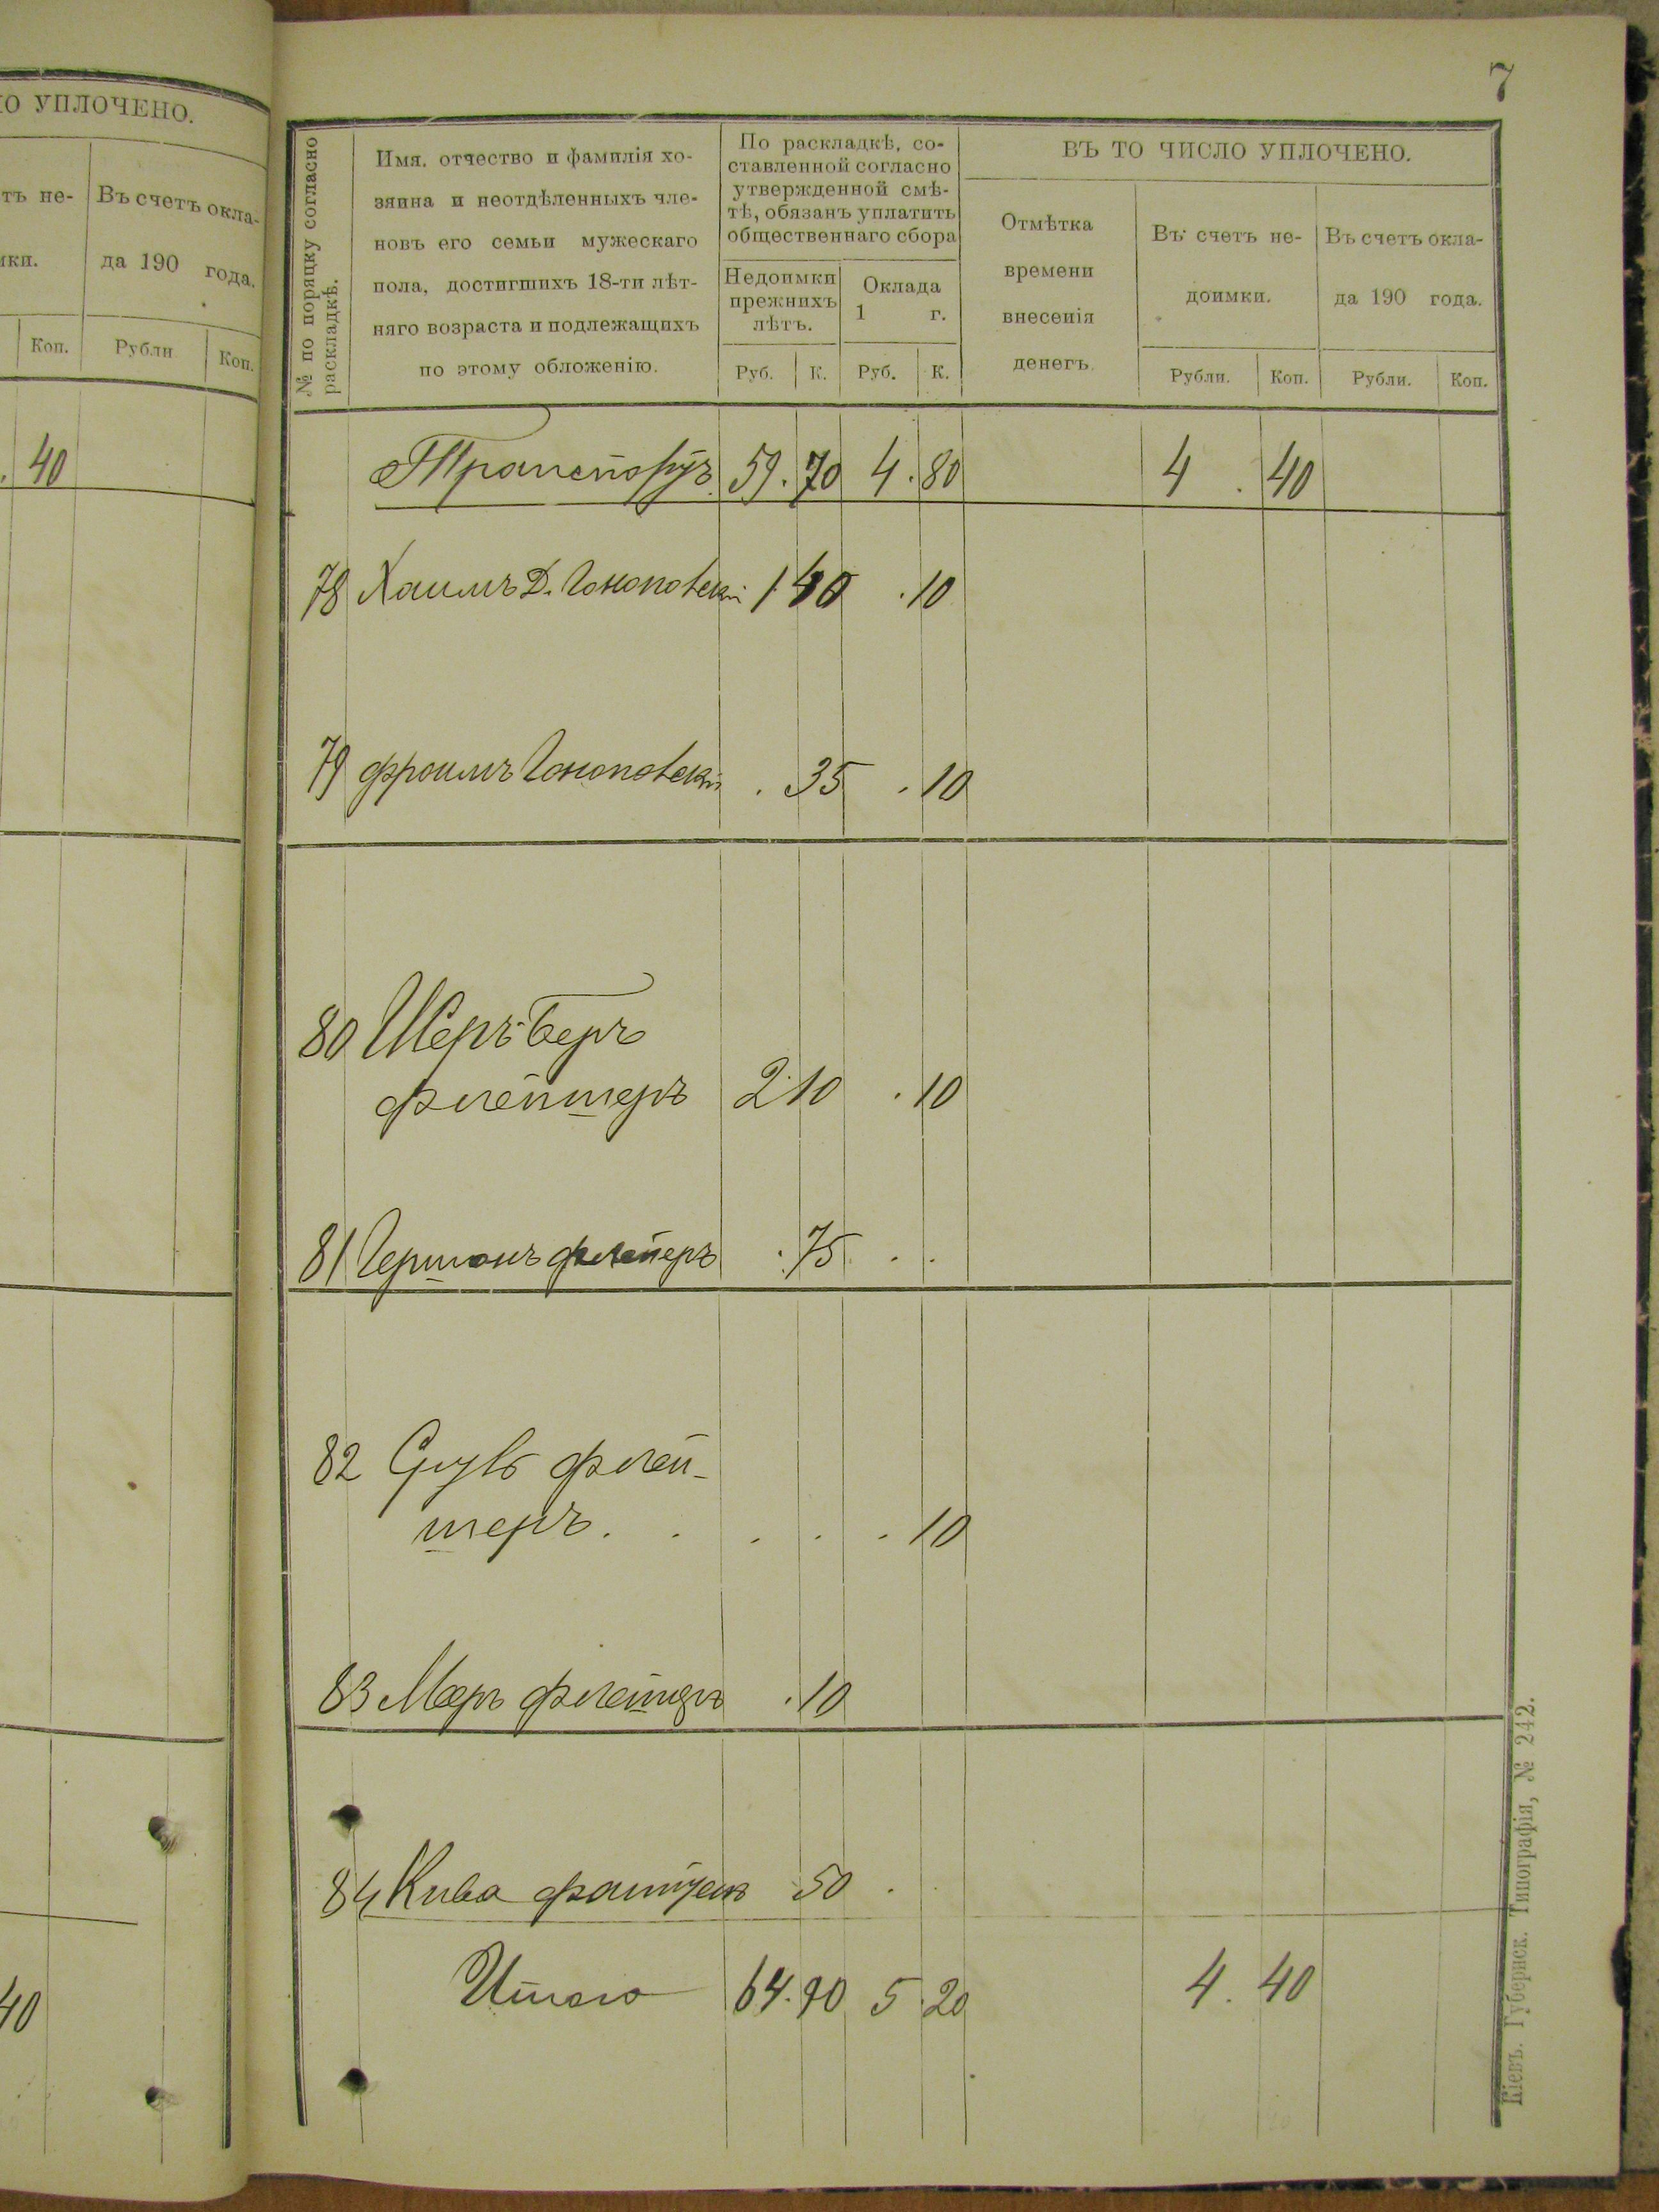 О УПЛОЧЕНО.
тъ не-
Въ счетъ окла-
мки.
да 190 года.
Коп.
Рубли
Коп.
40
40
7
№ по порядку согласно
раскладкѣ.
Имя, отчество и фамилія хо-
зяина и неотдѣленныхъ чле-
новъ его семьи мужескаго
пола, достигшихъ 18-ти лѣт-
няго возраста и подлежащихъ
по этому обложенію.
По раскладкѣ, со-
ставленной согласно
утвержденной смѣ-
тѣ, обязанъ уплатить
общественнаго сбора
Недоимки
прежнихъ
лѣтъ.
Оклада
1 г.
Руб. К. Руб. К.
ВЪ ТО ЧИСЛО УПЛОЧЕНО.
Отмѣтка
времени
внесенія
денегъ.
Въ счетъ не-
доимки.
Въ счетъ окла-
да 190 года.
Рубли. Коп. Рубли. Коп.
Транспортъ 59. 70 4. 80 4. 40
78 Хаимъ Д. 1 40 . 10
79 Фроимъ . 35 . 10
80 Беръ
Флейшеръ 2. 10 . 10
81 Гершонъ . 75 . .
82 Сруль Флей-
шеръ . . . . . 10
83 Мееръ Флейшеръ . 10
84 Кива 50 .
Итого 64. 90 5. 20 4. 40
Кіевъ. Губернск. Типографія, № 242.